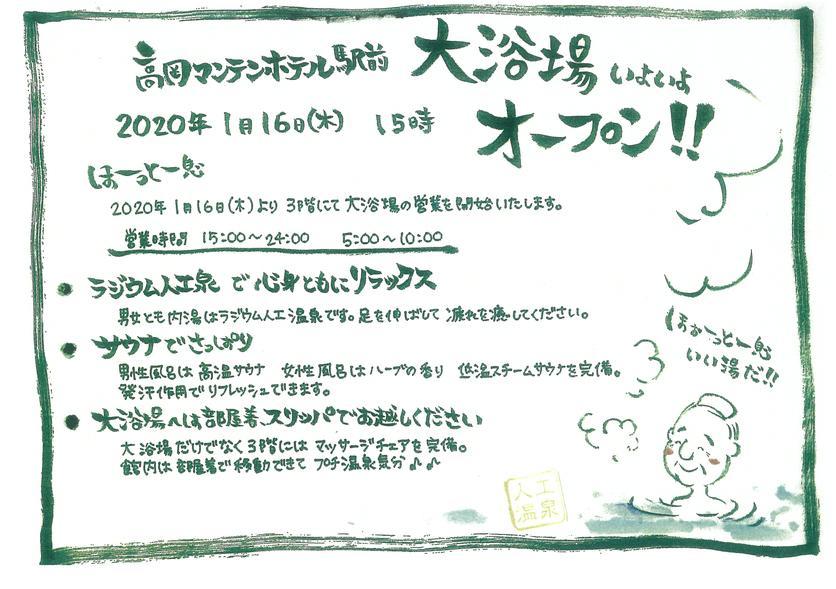 高岡マンテンホテル駅前 大浴場 いよいよ
オープン!!
2020年 1月16日(木) 15時
ほーっと一息
2020年1月16日(木)より 3階にて 大浴場の営業を開始いたします。
営業時間 15:00～24:00 5:00～10:00
● ラジウム人工泉 で 心身ともにリラックス
男女とも内湯はラジウム人工温泉です。足を伸ばして 疲れを癒してください。
● サウナでさっぱり
男性風呂は 高温サウナ 女性風呂はハーブの香り 低温スチームサウナを完備。
発汗作用で リフレッシュできます。
● 大浴場へは部屋着、スリッパでお越しください
大浴場だけでなく 3階には マッサージチェアを完備。
館内は 部屋着で移動できて プチ温泉気分♪♪
ほぉーっと一息
いい湯だ!!
人工
温泉